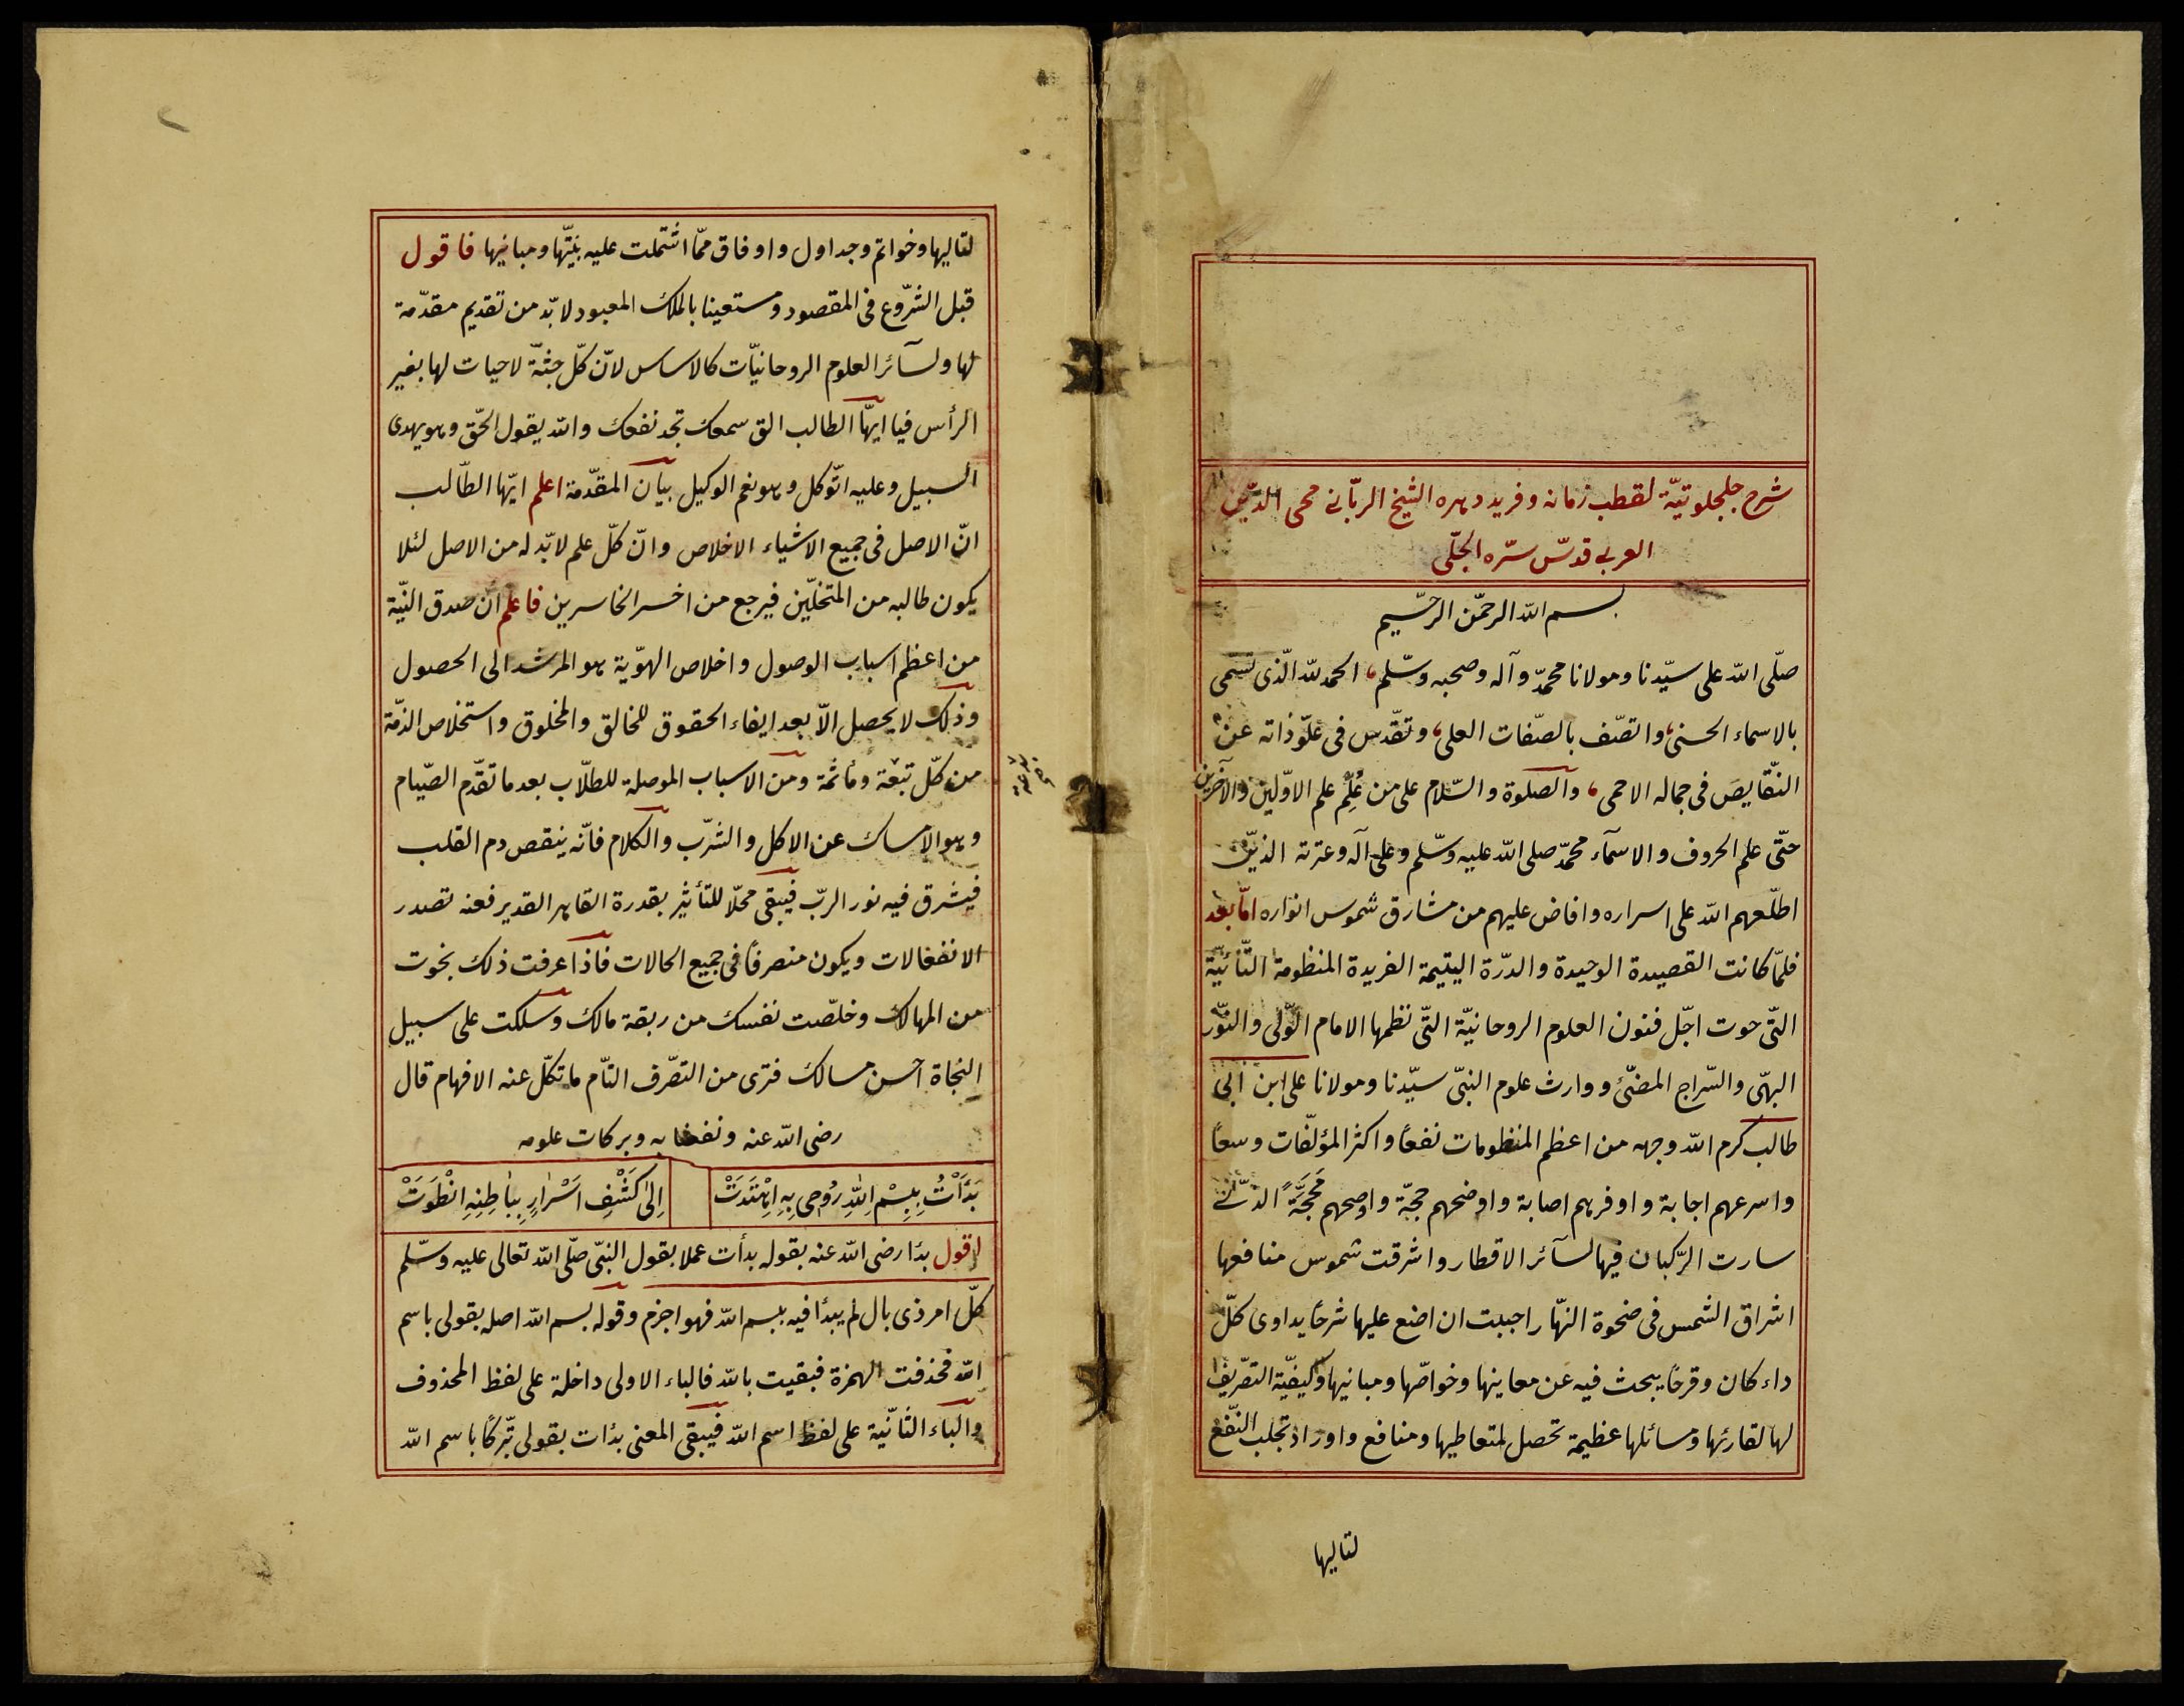 شرح جلجلوتيّة لقطب زمانه وفريد دهره الشيخ الربّانى محى الدّين
العربى قدّس سرّه الجلّى
بسم الله الرحمن الرحيم
صلّى الله على سيّدنا ومولانا محمّد وآله وصحبه وسلّم، الحمد لله الّذى تسمى
بالاسماء الحسنى، واتصّف بالصّفات العلى، وتقدّس فى علوّ ذاته عن
النّقايص فى جماله الاحمى، والصلوة والسّلام على من عُلِّم علم الاوّلين والآخرين
حتّى علم الحروف والاسمآء محمّد صلى الله عليه وسلّم وعلى آله وعترته الذين
اطلّعهم الله على اسراره وافاض عليهم من مشارق شموس انواره امّا بعد
فلمّا كانت القصيدة الوحيدة والدرّة اليتيمة الفريدة المنظومة التّائيّة
التّى حوت اجلّ فنون العلوم الروحانيّة التّى نظمها الامام الولّى والنّور
البهّى والسّراج المضئ ووارث علوم النبىّ سيّدنا ومولانا على ابن ابى
طالب كرم الله وجهه من اعظم المنظومات نفعاً واكثر المؤلّفات وسعاً
واسرعهم اجابة واوفرهم اصابة واوضحهم حجّة واوضحهم مَحَجَّةً
سارت الرّكبان فيها لسآئر الاقطار واشرقت شموس منافعها
اشراق الشمس فى ضحوة النهّار احببت ان اضع عليها شرحاً يداوى كلّ
داء كان وقرحاً يبحث فيه عن معاينها وخواصّها ومبانيها وكيفيّة التصّريف
لها لقارئها ومسائلها عظيمة تحصل لمتعاطيها ومنافع واوراد تجلب النّفع
لتاليها
لتاليها وخواتم وجداول واوفاق ممّا اشتملت عليه بنيّتها ومبانيها فاقول
قبل الشرّوع فى المقصود ومستعينا بالملك المعبود لا بّد من تقديم مقدّمة
لها ولسآئر العلوم الروحانيّات كالاساس لانّ كلّ جثّة لا حيات لها بغير
الرأس فيا ايهّا الطالب الق سمعك تجد نفعك والله يقول الحقّ وهو يهدى
السبيل وعليه اتّوكل وهو نعم الوكيل بيان المقدّمة اعلم ايّها الطّالب
انّ الاصل فى جميع الاشياء الاخلاص وانّ كلّ علم لا بّد له من الاصل لئلا
يكون طالبه من المتخلّين فيرجع من اخسر الخاسرين فاعلم ان صدق النيّة
من اعظم اسباب الوصول واخلاص الهوّية هو المرشد الى الحصول
وذلك لا يحصل الاّ بعد ايفاء الحقوق للخالق والمخلوق واستخلاص الذمّة
من كلّ تبعة ومأثمة ومن الاسباب الموصلة للطلّاب بعد ما تقدّم الصّيام
وهو الامساك عن الاكل والشرّب والكلام فانّه ينقص دم القلب
فيشرق فيه نور الربّ فيبقى محلّا للتأثير بقدرة القاهر القدير فعنه تصدر
الانفعالات ويكون منصرفاً فى جميع الحالات فاذا عرفت ذلك نجوت
من المهالك وخلّصت نفسك من ربقة مالك وسلكت على سبيل
النجاة احسن مسالك فترى من التصّرف التّام ما تكلّ عنه الافهام قال
رضى الله عنه ونفعنا به وبركات علومه
بَدَأْتُ بِبِسْمِ اللهِ رُوحِى بِهِ اهْتَدَتْ اِلىٰ كَشْفِ اَسْرَارٍ بِبَاطِنِهِ انْطَوَتْ
اقول بدأ رضى الله عنه بقوله بدأت عملا بقول النبىّ صلّى الله تعالى عليه وسلّم
كلّ امر ذى بال لم يبدأ فيه ببسم الله فهو اجزم وقوله بسم الله اصله بقولى باسم
الله فحذفت الهمزة فبقيت بالله فالباء الاولى داخلة على لفظ المحذوف
والباء الثانّية على لفظ اسم الله فيبقى المعنى بدأت بقولى تبّركاً باسم الله